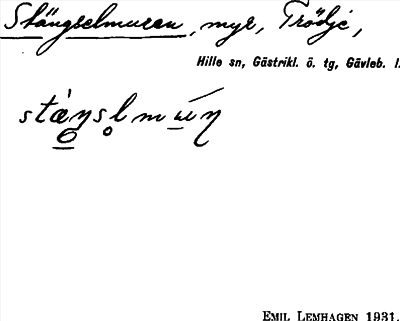 Stängselmuren, myr, Trödje,
Hille sn, Gästrikl. ö. tg, Gävleb. l.
EMIL LEMHAGEN 1931.